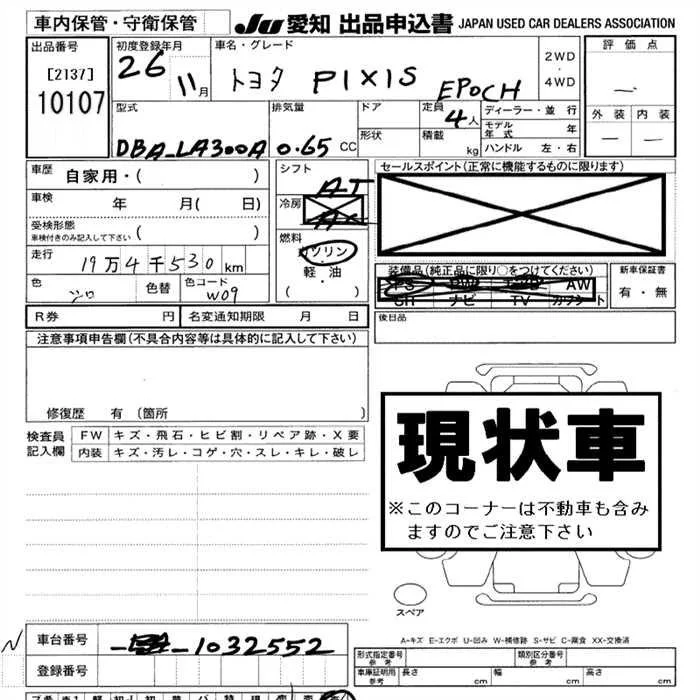 車内保管・守衛保管
JU 愛知 出品申込書 JAPAN USED CAR DEALERS ASSOCIATION
出品番号
[2137]
10107
初度登録年月
26 11月
車名・グレード
トヨタ PIXIS EPOCH
2WD
・
4WD
評価点
外装 内装
型式
DBA-LA300A
排気量
0.65 CC
ドア
形状
定員
4人
積載
kg
ディーラー・並行
モデル年式 年
ハンドル 左・右
車歴 自家用・( )
車検 年 月( 日)
受検形態
車検付きのみ記入して下さい ( )
走行
19万4千530km
色
シロ
色替
色コード
W09
シフト
AT
冷房
AC
燃料
ガソリン
・
軽・油
( )
セールスポイント(正常に機能するものに限ります)
装備品(純正品に限り○をつけてください)
PS PW AW
SH ナビ TV カワシート
新車保証書
有・無
R券 円
名変通知期限 月 日
後日品
注意事項申告欄(不具合内容等は具体的に記入して下さい)
修復歴 有 (箇所 )
検査員
記入欄
FW キズ・飛石・ヒビ割・リペア跡・X要
内装 キズ・汚レ・コゲ・穴・スレ・キレ・破レ
現状車
※このコーナーは不動車も含み
ますのでご注意下さい
スペア
A-キズ E-エクボ U-凹み W-補修跡 S-サビ C-腐食 XX-交換済
N
車台番号
1032552
登録番号
形式指定番号
参考
類別区分番号
参考
車庫証明用
参考
長さ cm 幅 cm 高さ cm